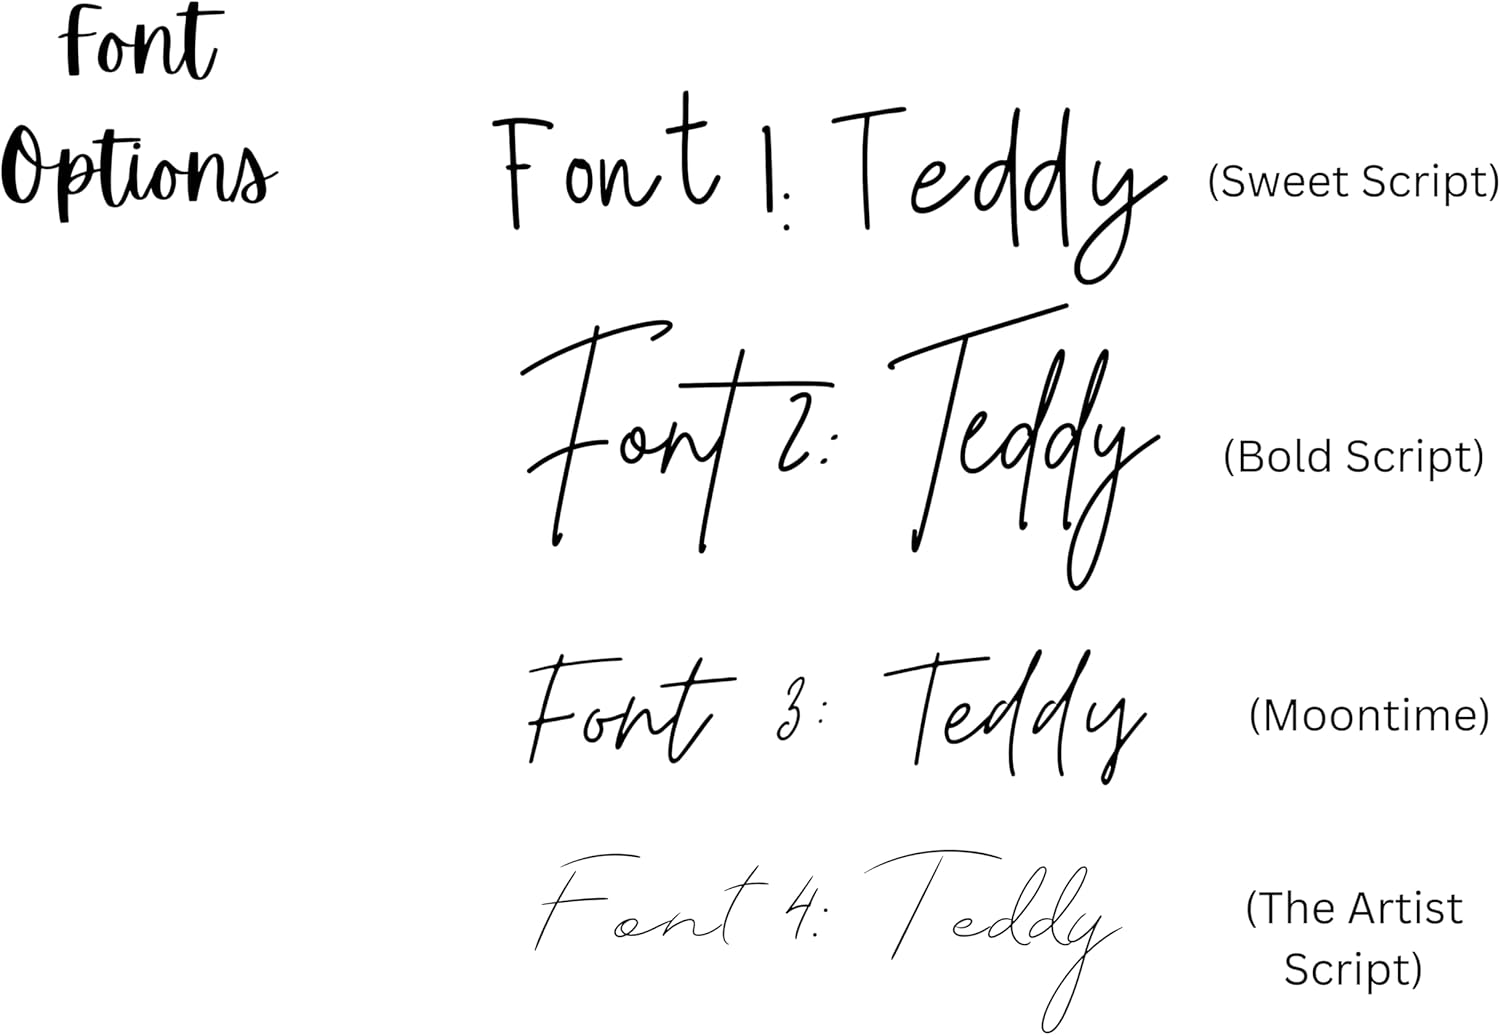 Font
Options
Font 1: Teddy (Sweet Script)
Font 2: Teddy (Bold Script)
Font 3: Teddy (Moontime)
Font 4: Teddy (The Artist
Script)